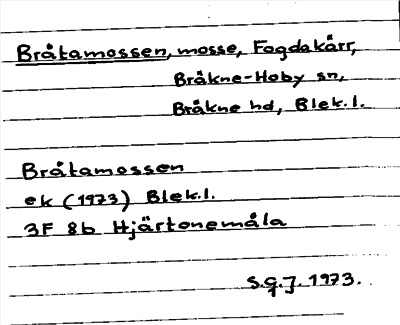 Bråtamossen, mosse, Fogdakärr,
Bräkne-Hoby sn,
Bräkne hd, Blek.l.
Bråtamossen
ek (1973) Blek.l.
3F 8b Hjärtonemåla
S.G.J. 1973.